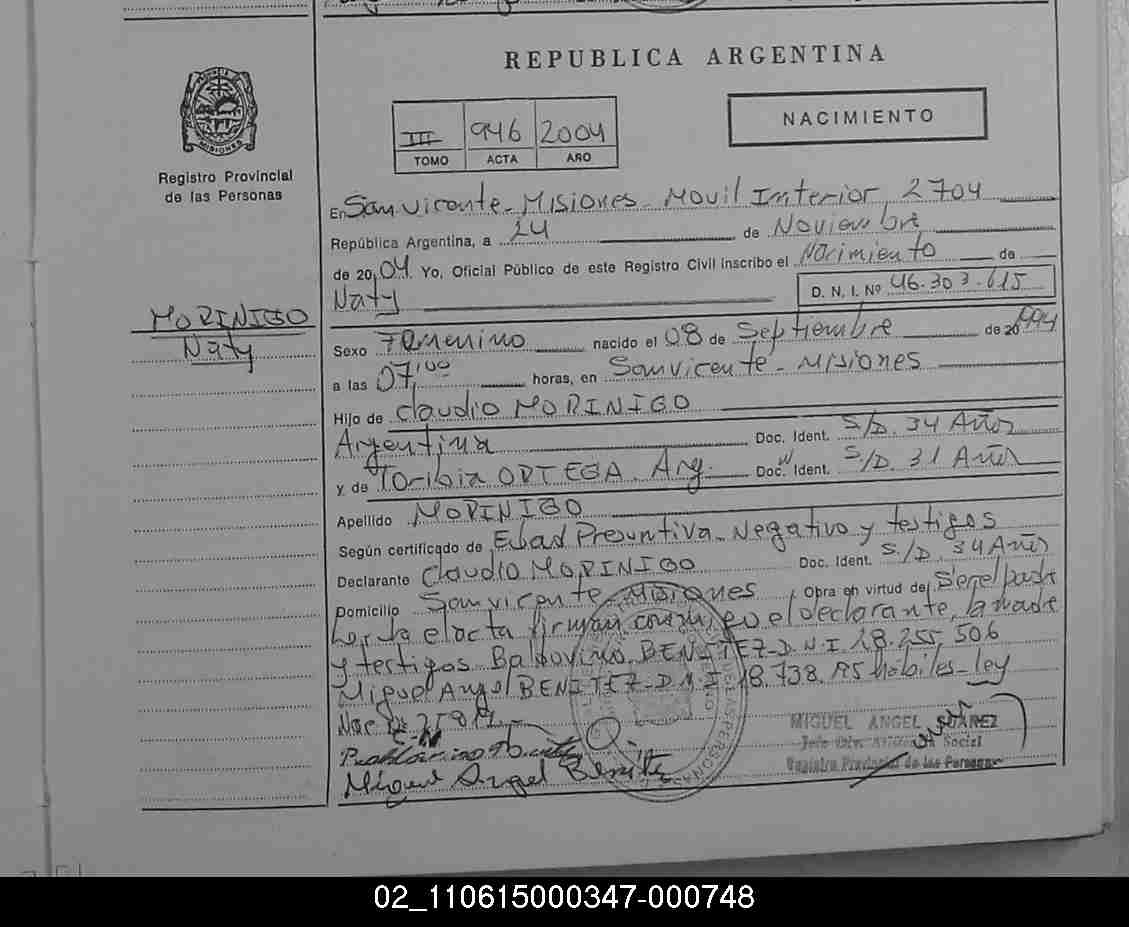 REPUBLICA ARGENTINA
III 946 2004
TOMO ACTA AÑO
NACIMIENTO
MISIONES
Registro Provincial
de las Personas
En San Vicente - Misiones - Movil Interior, 2704
República Argentina, a 24 de Noviembre
de 2004. Yo, Oficial Público de este Registro Civil inscribo el Nacimiento de
Naty
D. N. I. Nº 46.303.615
MORINIGO
Naty
Sexo Femenino nacido el 08 de Septiembre de 20 1994
a las 07,00 horas, en San Vicente - Misiones
Hijo de Claudio MORINIGO
Argentina Doc. Ident. S/D. 34 Años
y de Toribia ORTEGA. Arg. Doc. Ident. S/D. 31 Años
Apellido MORINIGO
Según certificado de Edad Presuntiva - Negativo y testigos
Declarante Claudio MORINIGO Doc. Ident. S./D. 34 Años
Domicilio San Vicente Misiones Obra en virtud de Ser el padre
el acta firman el declarante, la madre
y testigos Baldovino BENITEZ - D.N.I. 18.255.506
Miguel Angel BENITEZ - D.N.I. 18.738. habiles - ley
Nac.
Miguel Angel Benitez
MIGUEL ANGEL SUÁREZ
Jefe Div. Social
Registro Provincial de las Personas
02_110615000347-000748